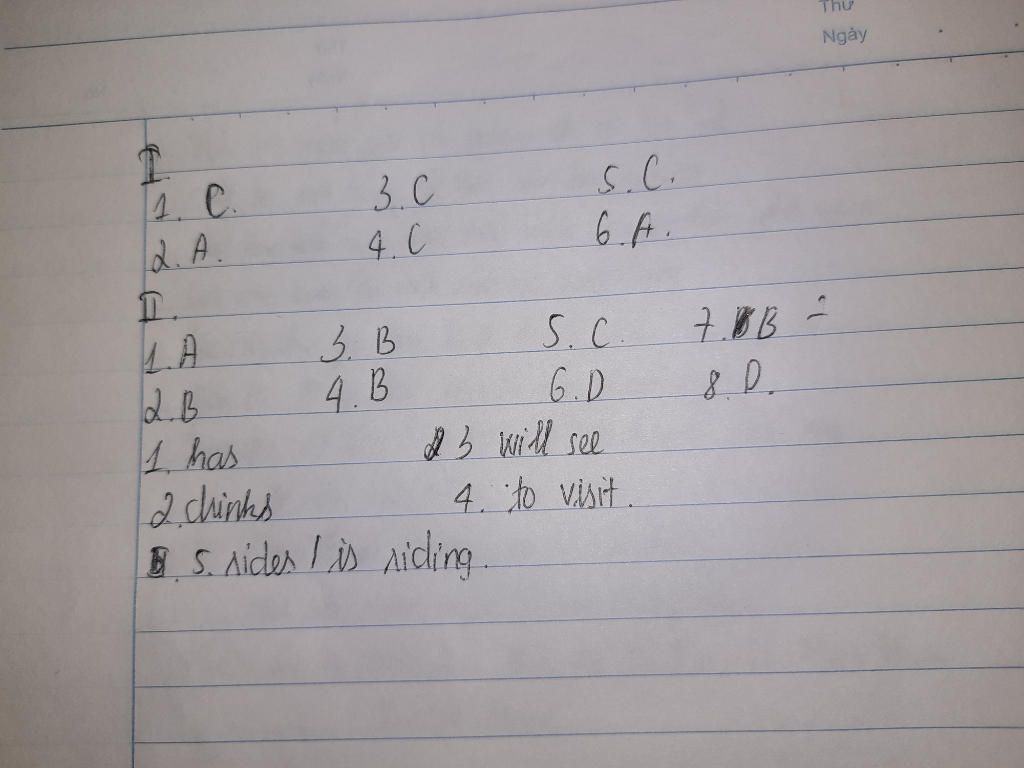 Thứ
Ngày
I
1. C. 3. C 5. C.
2. A. 4. C 6. A.
II.
1. A 3. B 5. C. 7. B
2. B 4. B 6. D 8. D.
1. has 3 will see
2. drinks 4. to visit.
5. rides / is riding.